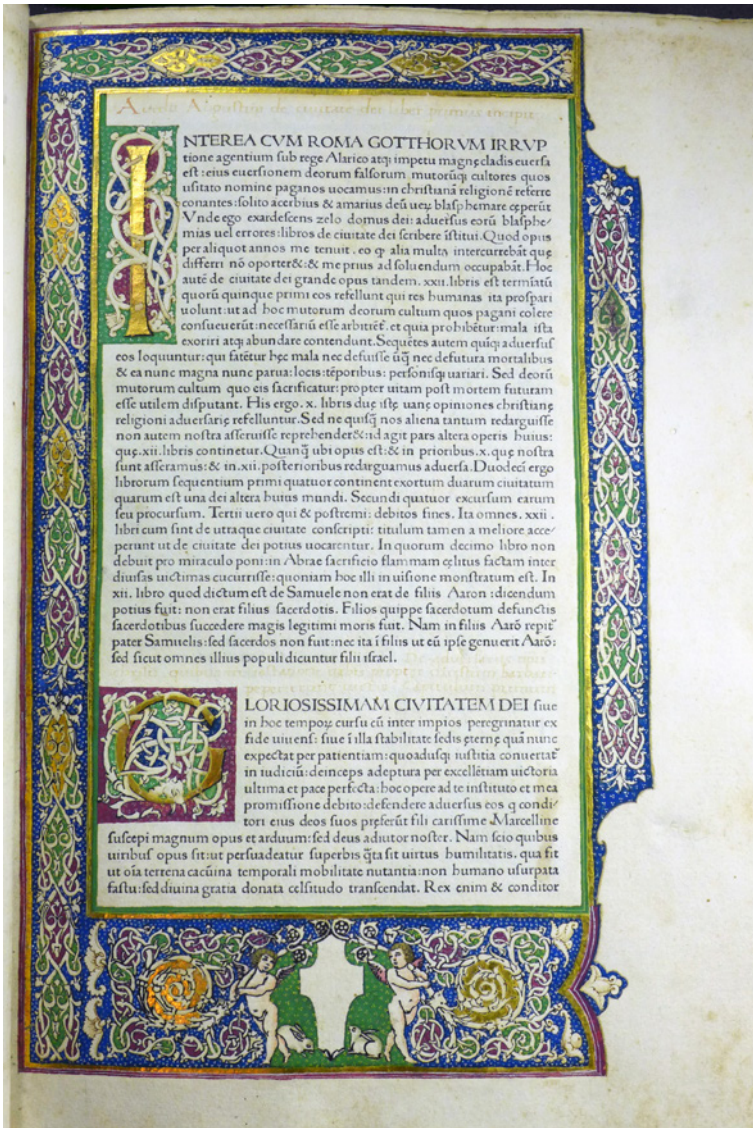 Aurelii Augustini de ciuitate dei liber primus incipit
INTEREA CVM ROMA GOTTHORVM IRRVP
tione agentium sub rege Alarico atqꝫ impetu magnę cladis euersa
est: eius euersionem deorum falsorum mutorūqꝫ cultores quos
usitato nomine paganos uocamus: in christianā religionē referre
conantes: solito acerbius & amarius deū ueꝝ blasphemare cęperūt
Vnde ego exardescens zelo domus dei: aduersus eorū blasphe⸗
mias uel errores: libros de ciuitate dei scribere īstitui. Quod opus
per aliquot annos me tenuit. eo ꝙ alia multa intercurrebāt quę
differri nō oporter&: & me prius ad soluendum occupabāt. Hoc
autē de ciuitate dei grande opus tandem. xxii. libris est termiatū
quorū quinque primi eos refellunt qui res humanas ita prospari
uolunt: ut ad hoc mutorum deorum cultum quos pagani colere
consueuerūt: necessariū esse arbitrēt. et quia prohibētur: mala ista
exoriri atqꝫ abundare contendunt. Sequētes autem quīqꝫ aduersus
eos loquuntur: qui fatētur hęc mala nec defuisse ūq̄ nec defutura mortalibus
& ea nunc magna nunc parua: locis: tēporibus: personisqꝫ uariari. Sed deorū
mutorum cultum quo eis sacrificatur: propter uitam post mortem futuram
esse utilem disputant. His ergo. x. libris duę istę uanę opiniones christianę
religioni aduersarię refelluntur. Sed ne quisq̄ nos aliena tantum redarguisse
non autem nostra asseruisse reprehender&: id agit pars altera operis huius:
quę. xii. libris continetur. Quanq̄ ubi opus est: & in prioribus. x. quę nostra
sunt asseramus: & in. xii. posterioribus redarguamus aduersa. Duodecī ergo
librorum sequentium primi quatuor continent exortum duarum ciuitatum
quarum est una dei altera huius mundi. Secundi quatuor excursum earum
seu procursum. Tertii uero qui & postremi: debitos fines. Ita omnes. xxii.
libri cum sint de utraque ciuitate conscripti: titulum tamen a meliore acce⸗
perunt ut de ciuitate dei potius uocarentur. In quorum decimo libro non
debuit pro miraculo poni: in Abrae sacrificio flammam cęlitus factam inter
diuisas uictimas cucurrisse: quoniam hoc illi in uisione monstratum est. In
xii. libro quod dictum est de Samuele non erat de filiis Aaron: dicendum
potius fuit: non erat filius sacerdotis. Filios quippe sacerdotum defunctis
sacerdotibus succedere magis legitimi moris fuit. Nam in filiis Aarō repit̄
pater Samuelis: sed sacerdos non fuit: nec ita ī filiis ut eū ipse genuerit Aarō:
sed sicut omnes illius populi dicuntur filii israel.
GLORIOSISSIMAM CIVITATEM DEI siue
in hoc tempoꝝ cursu cū inter impios peregrinatur ex
fide uiuens: siue ī illa stabilitate sedis ęternę quā nunc
expectat per patientiam: quoadusqꝫ iustitia conuertat̄
in iudiciū: deinceps adeptura per excellētiam uictoria
ultima et pace perfecta: hoc opere ad te instituto et mea
promissione debito: defendere aduersus eos q condi⸗
tori eius deos suos pręferūt fili carissime Marcelline
suscepi magnum opus et arduum: sed deus adiutor noster. Nam scio quibus
uiribus opus sit: ut persuadeatur superbis q̄ta sit uirtus humilitatis. qua fit
ut oīa terrena cacūina temporali mobilitate nutantia: non humano usurpata
fastu: sed diuina gratia donata celsitudo transcendat. Rex enim & conditor